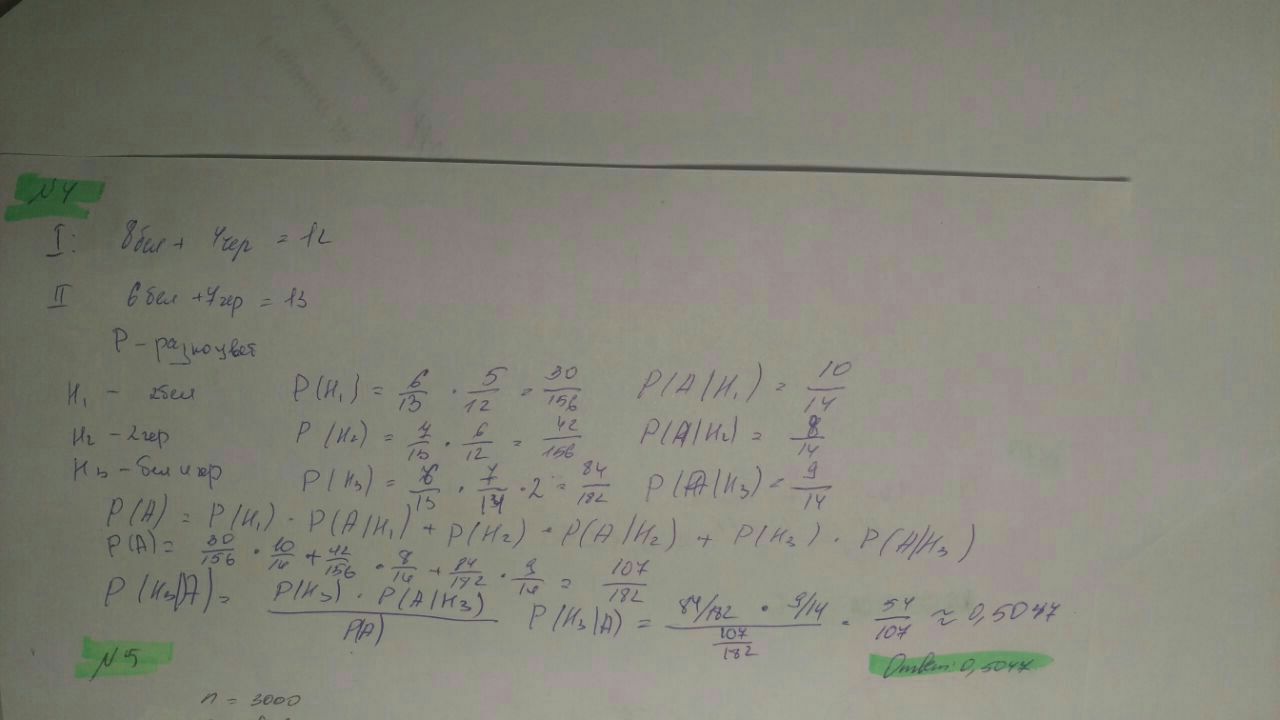 N4
I: 8 бел + 4 чер = 12
II 6 бел + 7 чер = 13
P - разноцвет
H₁ - 2 бел P(H₁) = 6/13 · 5/12 = 30/156 P(A/H₁) = 10/14
H₂ - 2 чер P(H₂) = 7/13 · 6/12 = 42/156 P(A/H₂) = 8/14
H₃ - бел и чер P(H₃) = 6/13 · 7/14 · 2 = 84/182 P(A/H₃) = 9/14
P(A) = P(H₁) · P(A/H₁) + P(H₂) · P(A/H₂) + P(H₃) · P(A/H₃)
P(A) = 30/156 · 10/14 + 42/156 · 8/14 + 84/182 · 9/14 = 107/182
P(H₃/A) = P(H₃) · P(A/H₃) / P(A) P(H₃/A) = 84/182 · 9/14 / 107/182 = 54/107 ≈ 0,5047
Ответ: 0,5047
N5
n = 3000